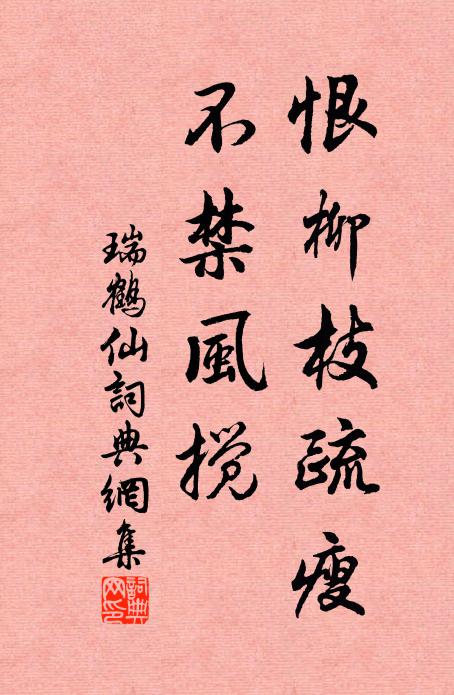 恨柳枝疏瘦
不禁風搅
瑞鶴仙詞典網集
詞典网印